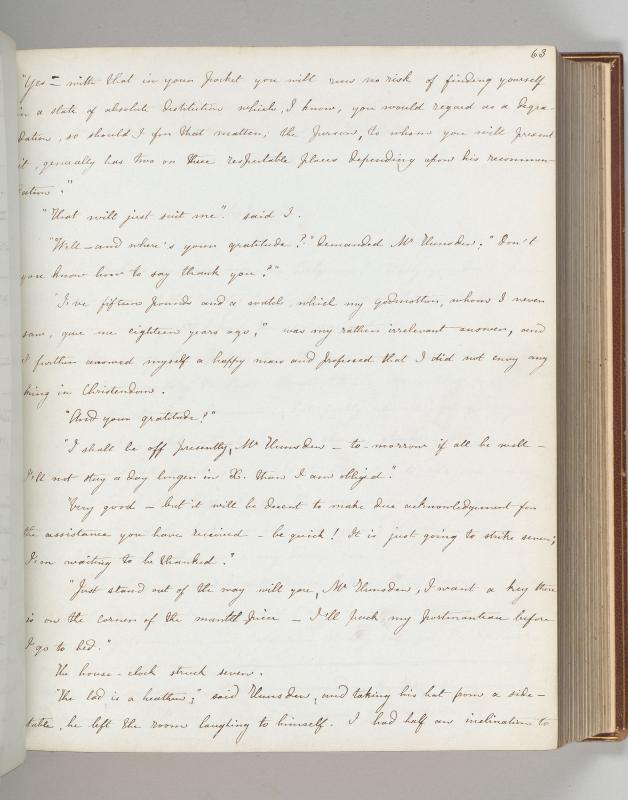 63
"Yes – with that in your pocket you will run no risk of finding yourself
in a state of absolute destitution which, I know, you would regard as a degra-
dation, so should I for that matter; the person, to whom you will present
it, generally has two or three respectable places depending upon his recommen-
ation."
"That will just suit me". said I.
"Well – and where's your gratitude?" demanded Mr Hunsden; "Don't
you know how to say thank you?"
"I've fifteen pounds and a watch, which my godmother, whom I never
saw, gave me eighteen years ago," was my rather irrelevant answer, and
I further avowed myself a happy man and professed that I did not envy any
king in Christendom.
"And your gratitude?"
"I shall be off presently, Mr Hunsden – to-morrow if all be well –
I'll not stay a day longer in X. than I am obliged."
"Very good – but it will be decent to make due acknowledgement for
the assistance you have received – be quick! It is just going to strike seven;
I'm waiting to be thanked."
"Just stand out of the way will you, Mr Hunsden, I want a key there
is on the corner of the mantel piece – I'll pack my portmanteau before
I go to bed."
The house-clock struck seven.
"The lad is a heathen;" said Hunsden, and taking his hat from a side-
table, he left the room laughing to himself. I had half an inclination to